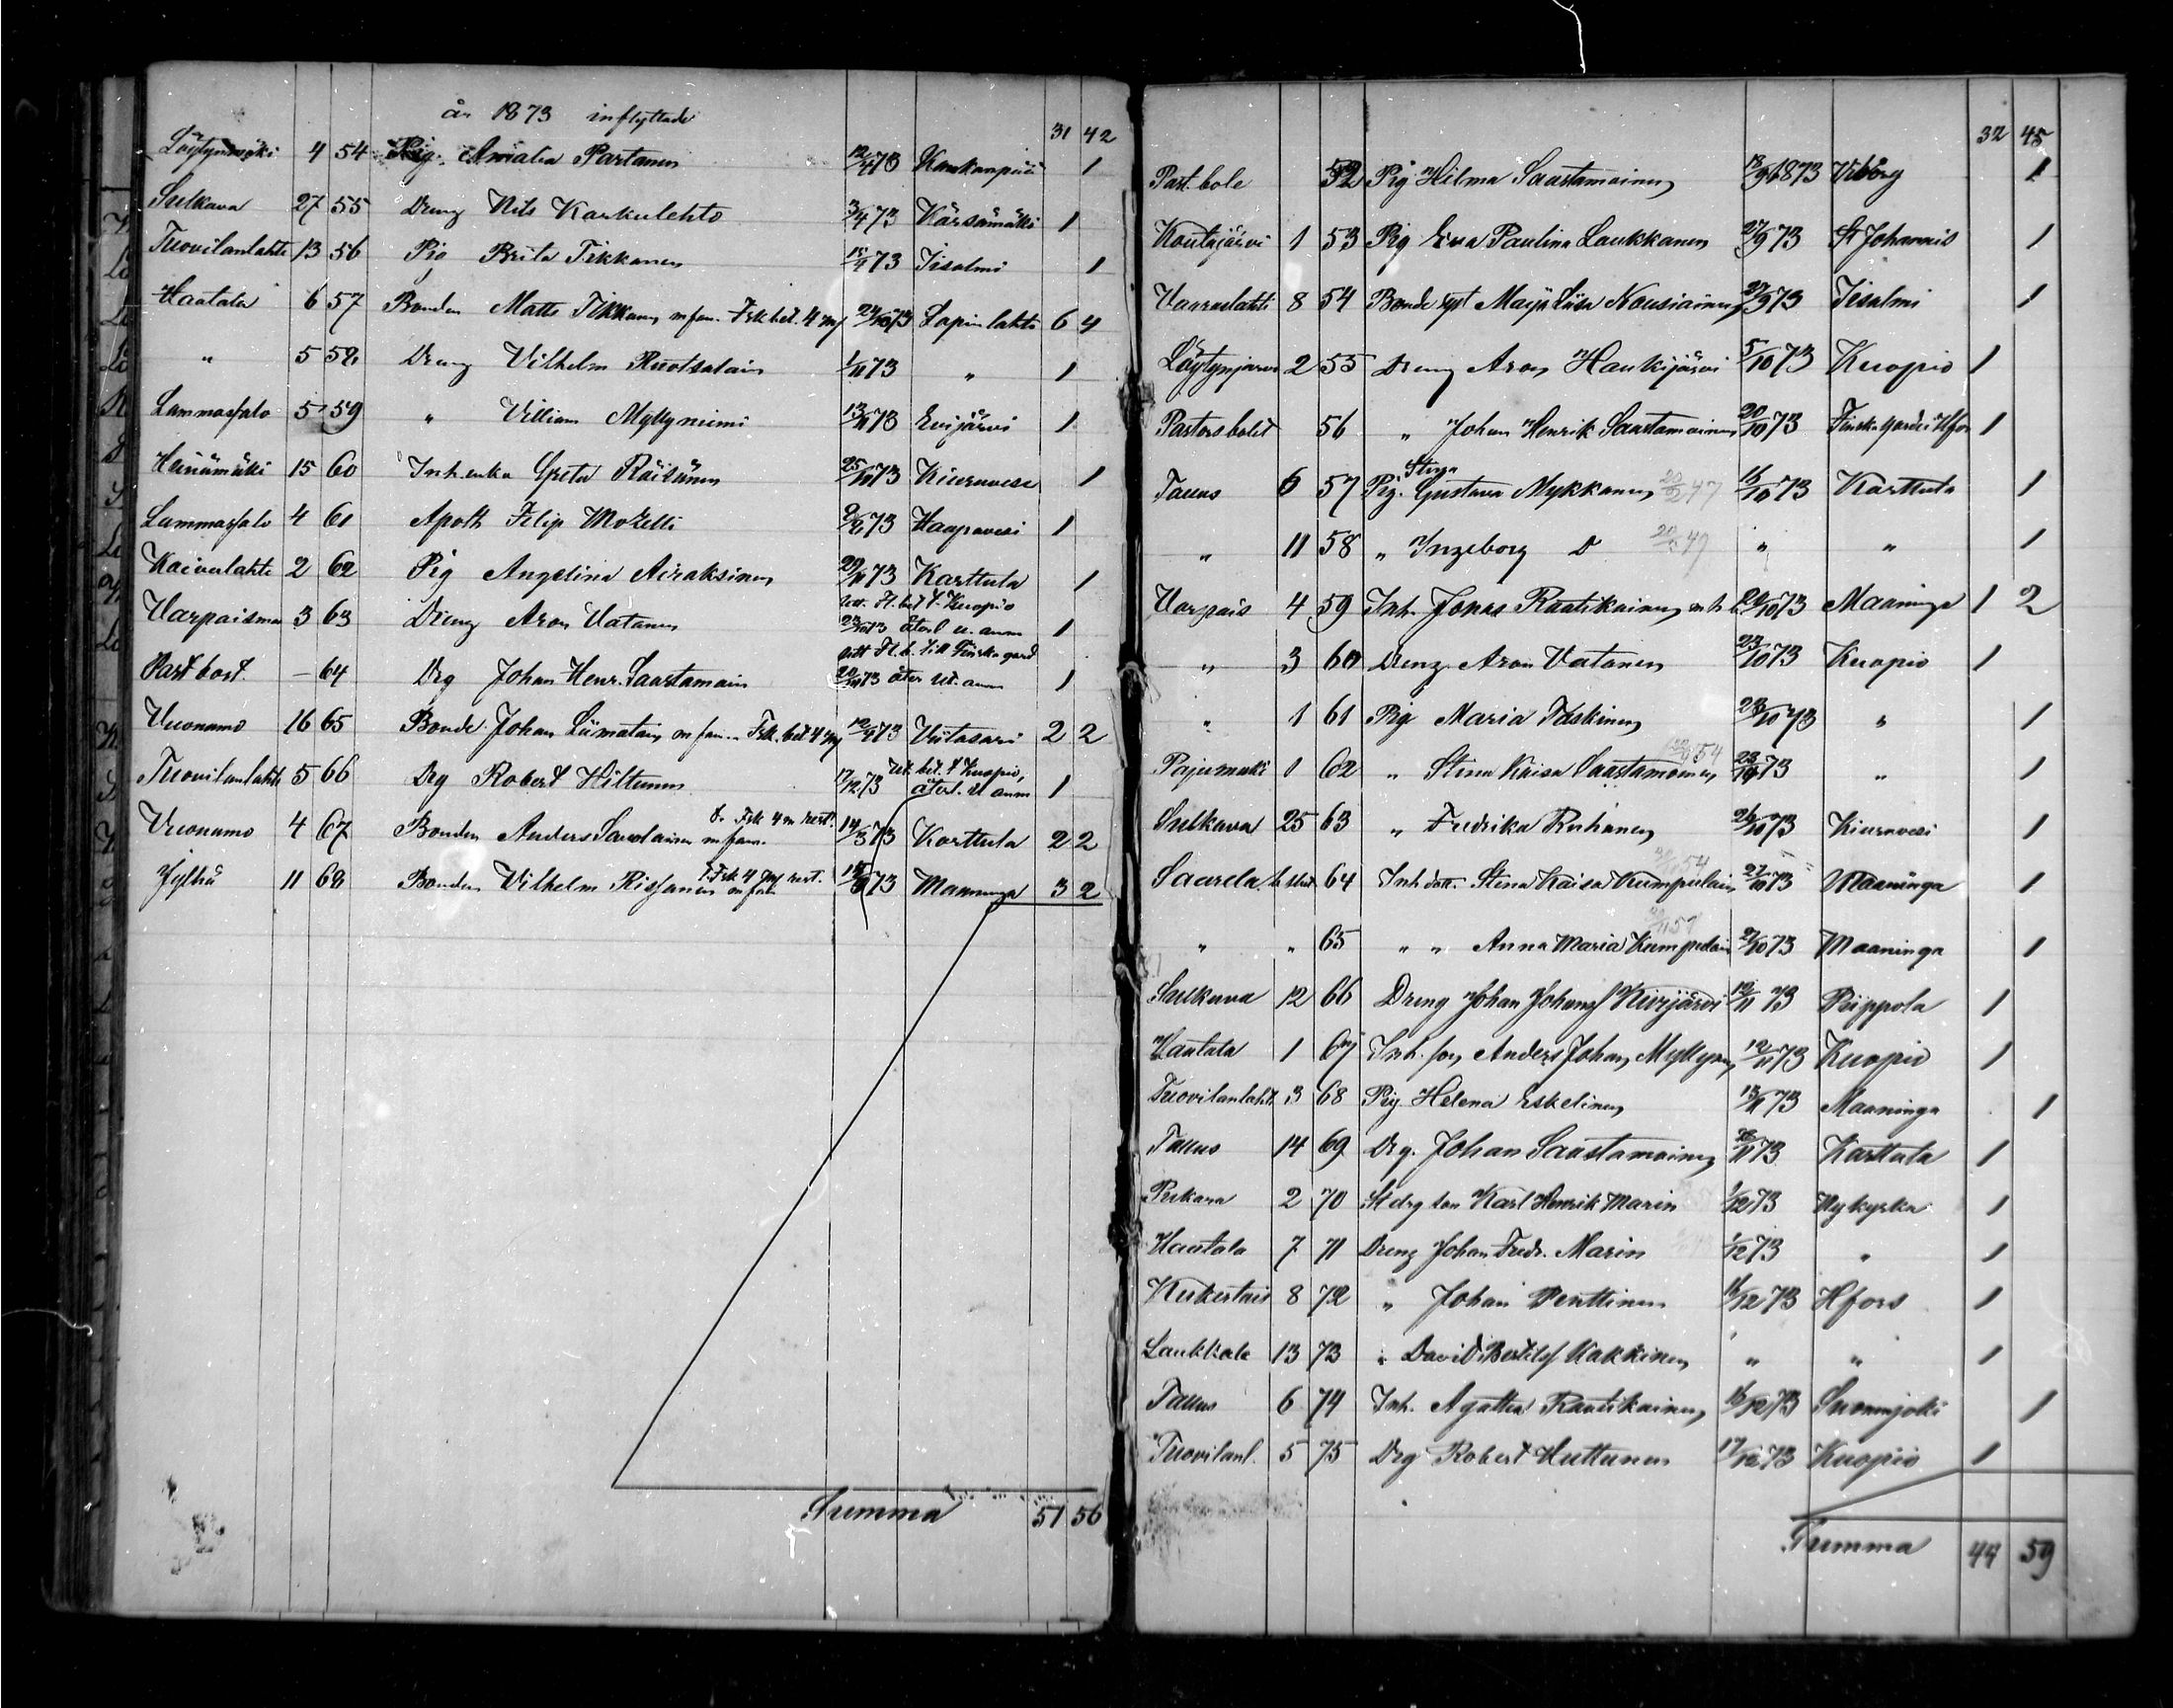 år 1873 inflyttade
31 42
Löytynmäki 4 54 Pig. Amalia Partanen 12/4 73 Kankanpää 1
Sulkava 27 55 Dreng Nils Karkulehto 3/4 73 Kärsämäki 1
Tuovilanlahti 13 56 Pig Brita Tikkanen 73 Iisalmi 1
Hautala 6 57 Bonden Matts Tikkanen m fam. Fsk bet. 4 mf 24/10 73 Lapinlahti 6 4
" 5 58 Dreng Vilhelm Ruotsalain 1/11 73 " 1
Lammassalo 5 59 " Villiam Myllyniemi 13/11 73 Evijärvi 1
Heinämäki 15 60 Inh. enka Greta Räisänen 25/10 73 Kiuruvesi 1
Lammassalo 4 61 Apoth Filip Mozelli 73 Haapavesi 1
Kaivulahti 2 62 Pig Angelina Airaksinen 29/11 73 Karttula 1
utt. Fl. bet t. Kuopio
Varpaisma 3 63 Dreng Aron Vatanen 23/10 73 återl u. anm 1
utt Fl. b. till Finska gard
Past bost. — 64 Drg Johan Henr. Saastamoin 20/10 73 åter ut. anm 1
Vuonamo 16 65 Bonde Johan Liimatain m fam. Fsk. bet 4 mf 73 Viitasari 2 2
Ut. bet. t Kuopio,
Tuovilanlahti 5 66 Drg Robert Hiltunen 17/12 73 återl. u anm 1
Vuonamo 4 67 Bonden Anders Savolainen m fam. Fsk 4 m rest. 14/3 73 Karttula 2 2
Jylhä 11 68 Bonden Vilhelm Rissanen m fam Fsk 4 mf rest. 73 Maaninga 3 2
Summa 51 56
32 45
Past. bole 52 Pig Hilma Saastamoinen 1873 Viborg 1
Koutajärvi 1 53 Pig Eva Paulina Laukkanen 27/9 73 St Johannis 1
Varraslahti 8 54 Bonde syst Maija Liisa Nousiainen 27/9 73 Iisalmi 1
Löytynjärvi 2 55 Dreng Aron Haukijärvi 5/10 73 Kuopio 1
Pastorsbolet 56 " Johan Henrik Saastamoinen 20/10 73 Finska gardei Hfors 1
Stina
Taurus 6 57 Pig. Gustava Mykkänen 47 16/10 73 Karttula 1
" 11 58 " Ingeborg D 49 " " 1
Varpais 4 59 Inh. Jonas Rautikainen m h 24/10 73 Maaninga 1 2
" 3 60 Dreng Aron Vatanen 23/10 73 Kuopio 1
" 1 61 Pig Maria Taskinen 23/10 73 " 1
Pajumäki 1 62 " Stina Kaisa Saastamoinen 54 23/10 73 " 1
Sulkava 25 63 " Fredrika Ruhanen 26/10 73 Kiuruvesi 1
Saarela 64 Inh dott. Stina Kaisa Kumpulain 54 27/10 73 Maaninga 1
" " 65 " " Anna Maria Kumpulain 57 27/10 73 Maaninga 1
Sulkava 12 66 Dreng Johan Johanss Kivijärvi 12/11 73 Piippola 1
Hautala 1 67 Inh. son Anders Johan Myllynen 12/11 73 Kuopio 1
Tuovilanlaht 3 68 Pig Helena Eskelinen 13/11 73 Maaninga 1
Taurus 14 69 Drg. Johan Saastamoinen 11 73 Karttula 1
Pukara 2 70 St drg son Karl Henrik Marin 1/12 73 Nykyrka 1
Hautala 7 71 Dreng Johan Fredr. Marin 1/12 73 " 1
Kukertais 8 72 " Johan Penttinen 16/12 73 Hfors 1
Laukkala 13 73 " David Bertilss Kakkinen " " 1
Taurus 6 74 Inh. Agatha Rautikainen 16/12 73 Suonnejoki 1
Tuovilanl. 5 75 Drg Robert Huttunen 17/12 73 Kuopio 1
Summa 44 59